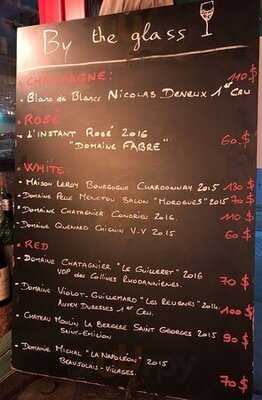 By the glass
CHAMPAGNE: 110 $
- Blanc de Blancs NICOLAS DENEUX 1er CRU
ROSÉ
- L'INSTANT ROSÉ 2016 60 $
"DOMAINE FABRE"
WHITE
- MAISON LEROY BOURGOGNE CHARDONNAY 2015 130 $
- DOMAINE PELLE MENETOU SALON "MOROGUES" 2015 70 $
- DOMAINE CHATAGNIER CONDRIEU 2016. 110 $
- DOMAINE QUENARD CHIGNIN V.V 2015 60 $
RED
- DOMAINE CHATAGNIER "LE GUILLERET" 2016 70 $
VDP des COLLINES RHODANIENNES.
- DOMAINE VIOLOT-GUILLEMARD "LES REUGNES" 2014. 100 $
AUXEY DURESSES 1er CRU.
- CHATEAU MOULIN LA BERGERE SAINT GEORGES 2015 90 $
SAINT-EMILION
- DOMAINE MICHAL "LA NAPOLÉON" 2015 70 $
BEAUJOLAIS-VILLAGES.